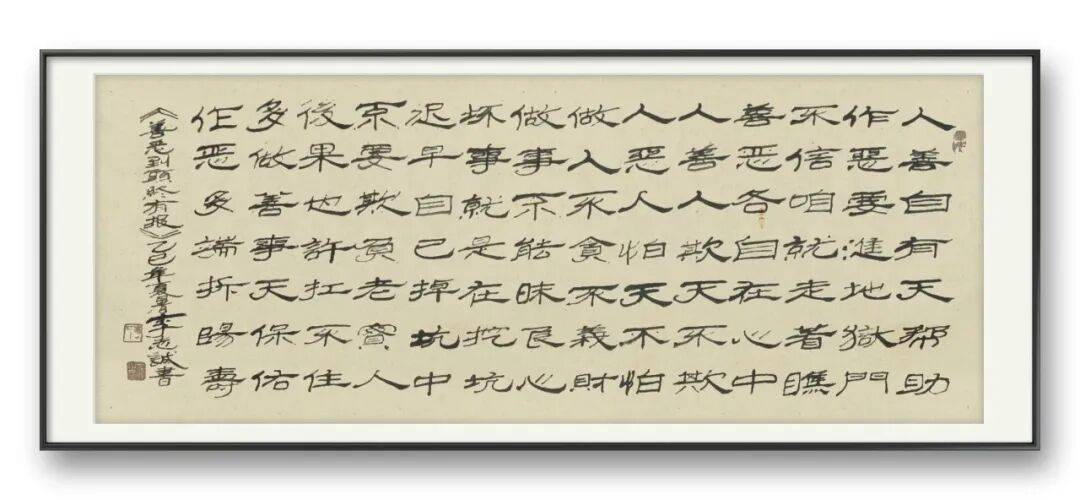 人善自有天帮助
作惡要進地獄門
不信咱就走着瞧
善恶各自在心中
人善人欺天不欺
人恶人怕天不怕
做人不貪不義財
做事不能昧良心
坏事就是在挖坑
迟早自己掉坑中
不要欺負老實人
後果也許扛不住
多做善事天保佑
作恶多端折陽壽
《善恶到頭終有报》乙巳年夏暑李志誠書